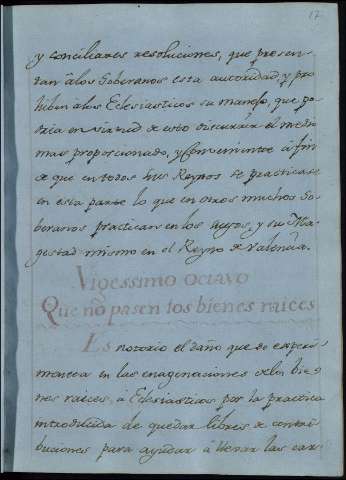 17
y conciliares resoluciones, que presen-
tan â los Soberanos esta autoridad, y pro
hiben a los Eclesiasticos su manejo, que po
dria en virtud de esto discurrir el medio
mas proporcionado, y conveniente â fin
de que en todos sus Reynos se practicase
en esta parte lo que en otros muchos So
beranos practican en los suyos, y su Ma
gestad mismo en el Reyno de Valencia.
Vigessimo octavo
Que no pasen los bienes raices
Es notorio el daño que se experi
menta en las enagenaciones de los bie
nes raices, a Eclesiasticos por la practica
introducida de quedar libres de contri
buciones para ayudar â llevar las car